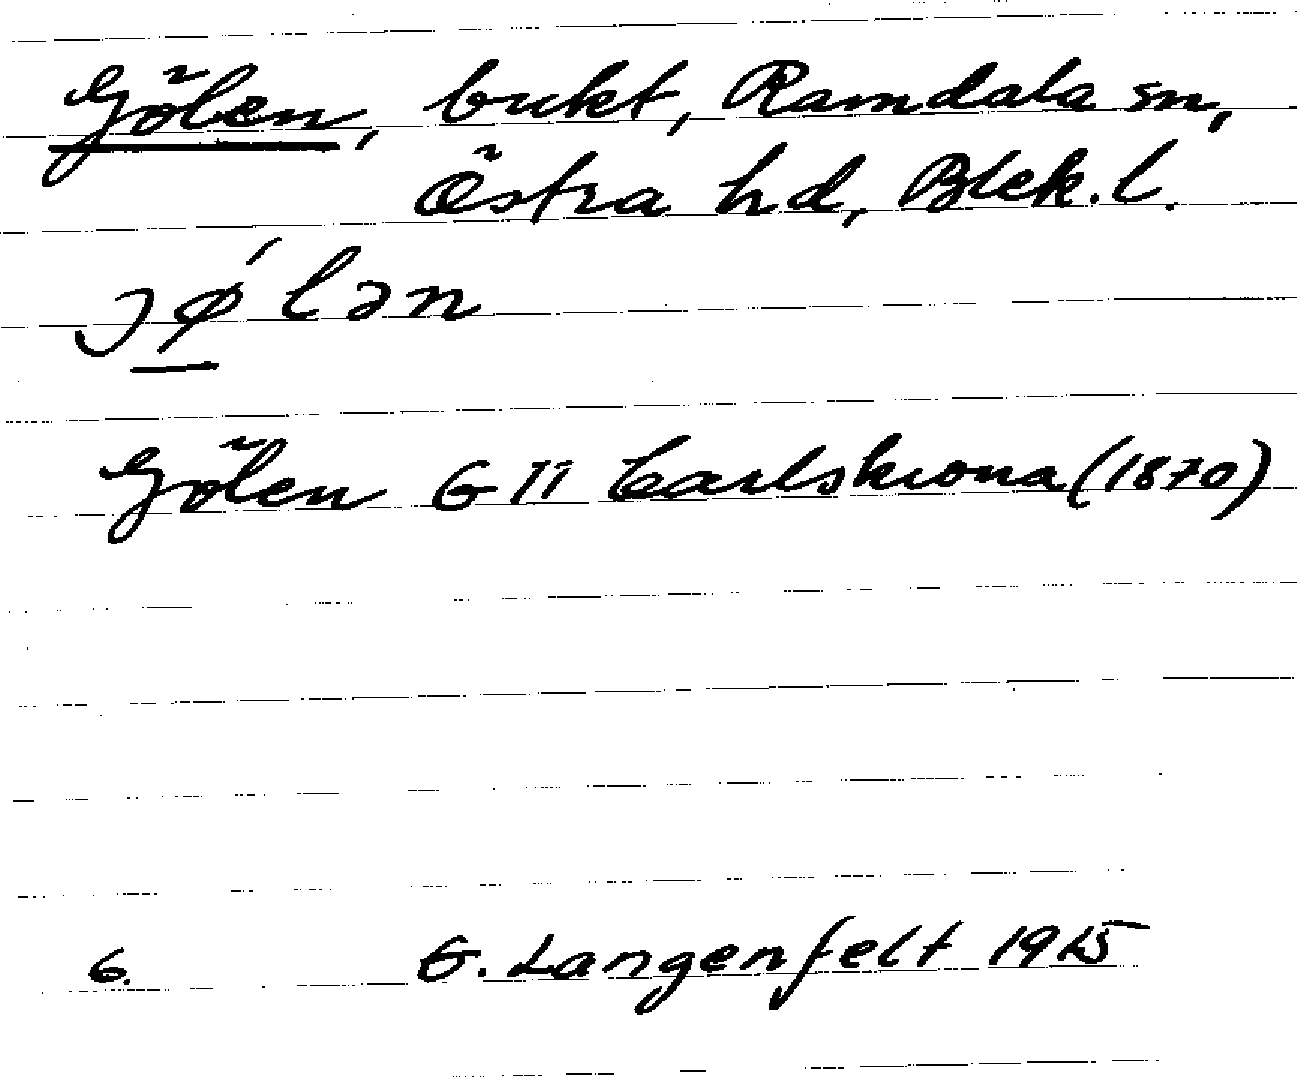 Gölen, bukt, Ramdala sn,
Östra hd, Blek. l.
jø´lən
Gölen G II Carlskrona (1870)
6. G. Langenfelt 1915